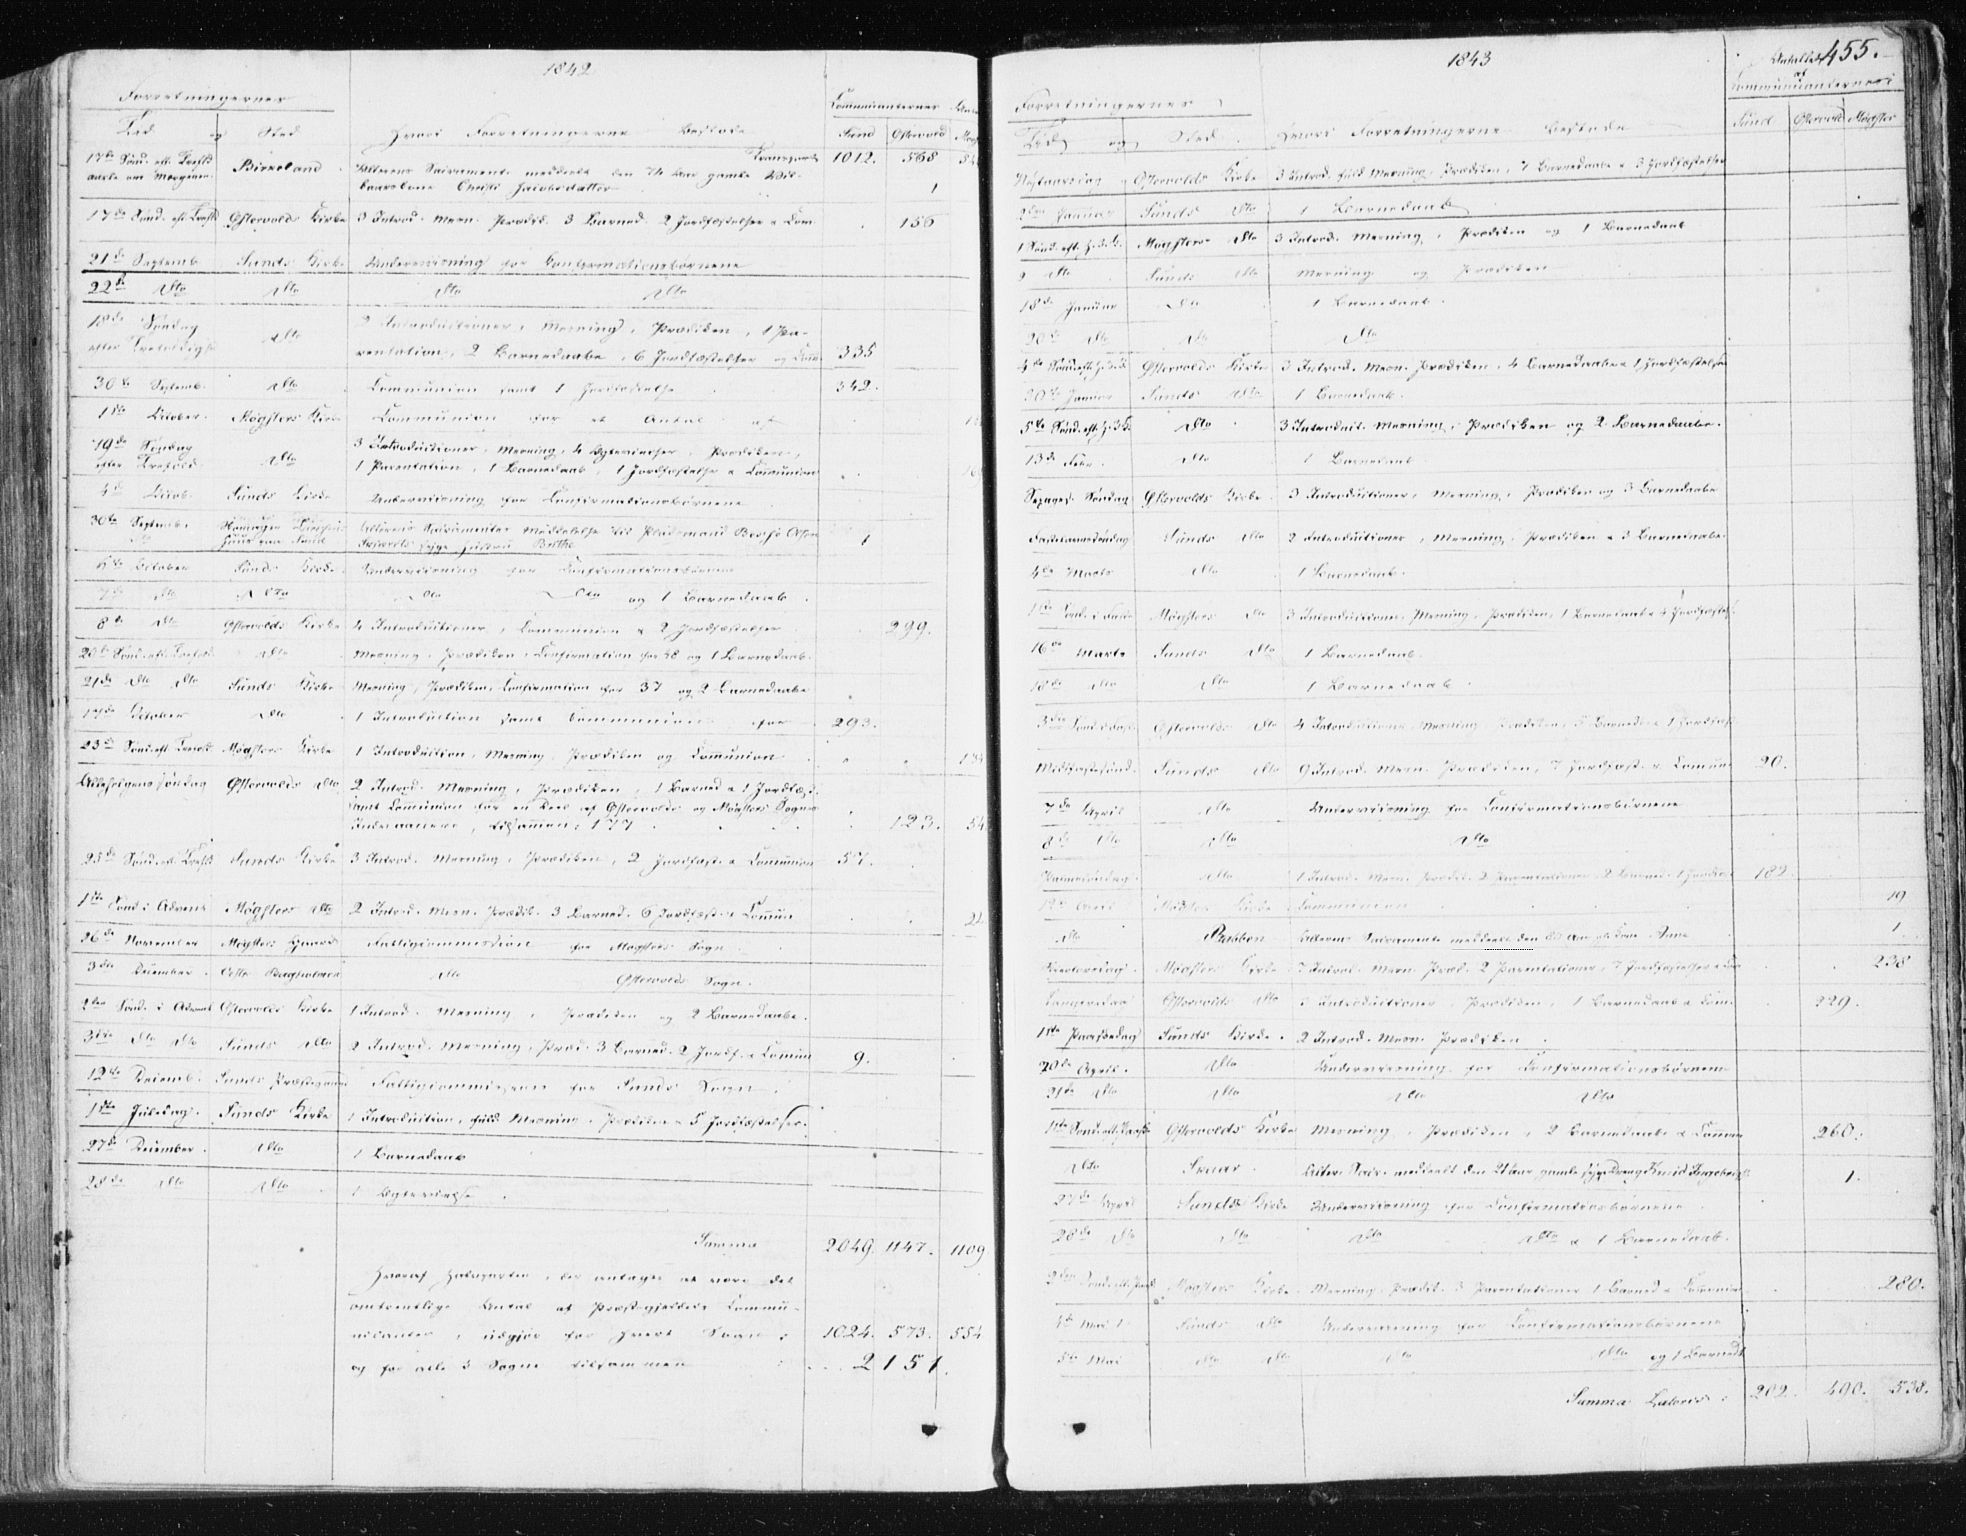 1842
Forretningernes
Tid og Sted Hvori Forretningerne bestode Communicanterne
Sund Østevold
Transport 1012. 568
17de Sønd. eft. Trefold. Birkeland Alterens Sacramente meddeelt den 74 Aar gamle
Christi Jacobsdatter 1
17de Sønd. eft. Trefold. Østevolds Kirke 3 Introd. Messn. Prædik. 3 Barned. 2 Jordfæstelser & Com. 156
21de Septemb. Sunds Kirke Underviisning for Confirmationsbørnene
22de Dto Dto Dto Dto
18de Søndag Dto 3 Introductioner, Messning, Prædiken, 1 Pa-
efter Trefoldigh. rentation, 2 Barnedaabe, 6 Jordfæstelser og Com. 335
30te Septemb. Dto Communion samt 1 Jordfæstelse 342.
1ste October. Møgsters Kirke Communion for et Antal af
19de Søndag 3 Introductioner, Messning, 4 Ægtevielser, Prædiken,
efter Trefold. Dto 1 Parentation, 1 Barnedaab, 1 Jordfæstelse & Comunion
4de Octob. Sunds Kirke Underviisning for Confirmationsbørnene
30te Septemb. Alterens Sacramentes Meddelelse til
syge Hustru Brithe 1
6te October Sunds Kirke Underviisning for Confirmationsbørnene
7de Dto Dto Dto Dto og 1 Barnedaab
8de Dto Østevolds Kirke 4 Introductioner, Communion & 2 Jordfæstelser 299.
20de Sønd. eft. Trefold. Dto Messning, Prædiken, Confirmation for 28 og 1 Barnedaab.
21de Dto Dto Sunds Kirke Messning, Prædiken, Confirmation for 37 og 2 Barnedaabe
October Dto 1 Introduction samt Communion for 293.
23de Sønd. eft. Trefold. Møgsters Kirke 1 Introduction, Messning, Prædiken og Comunion
Allehelgens Søndag Østevolds Dto 2 Introd. Messning, Prædiken, 1 Barned. & 1 Jordfæst.
samt Comunion for en Deel af Østevolds og Møgsters Sogne
tilsammen: 177 123. 54
25de Sønd. eft. Trefold. Sunds Kirke 3 Introd. Messning, Prædiken, 2 Jordfæst. & Comunion 57.
1ste Sønd. i Advent Møgsters Dto 2 Introd. Messn. Prædik. 3 Barned. 6 Jordfæst. & Comun
26de November Møgsters Gaard Fattigcommission for Møgsters Sogn
3die December Dto Østevolds Sogn.
2den Sønd. i Advent Østevolds Kirke 1 Introd. Messning, Prædiken og 2 Barnedaabe.
3die Dto Dto Sunds Dto 2 Introd. Messning, Præd. 3 Barned. 2 Jordf. & Comun 9.
12te Decemb. Sunds Præstegaard Fattigcommission for Sunds Sogn.
1ste Juledag. Sunds Kirke 1 Introduction, fuld Messning, Prædiken & 5 Jordfæstelser.
27de December. Dto 1 Barnedaab
28de Dto Dto 1 Ægtevielse.
Summa 2049. 1147. 1109
Hvoraf Halvparten, der antages at være det
omtrentlige Antal af Præstegjeldets Commu-
nicanter, udgjør for hvert Sogn: 1024. 573. 554
og for alle 3 Sogne tilsammen: 2151.
1843
455.
Antallet
af
Communicanternes
Forretningernes
Tid og Sted. Hvori Forretningerne bestode Sund Østevold Møgster
Nytaarsdag Østevolds Kirke 3 Introd. fuld Messning, Prædiken, 7 Barnedaabe & 3 Jordfæstelser
2den Januar Sunds Dto 1 Barnedaab
1 Sønd. eft. H.3.K. Møgsters Dto 3 Introd. Messning, Prædiken og 1 Barnedaab
2 Dto Sunds Dto Messning og Prædiken
18de Januar Dto 1 Barnedaab.
20de Dto Dto Dto
4de Sønd. eft. H.3.K. Østevolds Kirke 3 Introd. Messn. Prædiken, 4 Barnedaabe & 1 Jordfæstelse
30te Januar Sunds Dto 1 Barnedaab.
5te Sønd. eft. H.3.K. Dto 3 Introduct. Messning, Prædiken og 2 Barnedaabe.
13de Febr. Dto 1 Barnedaab
Sexages. Søndag Østevolds Kirke 3 Introductioner, Messning, Prædiken og 3 Barnedaabe
Fastelavnssøndag Sunds Dto 2 Introductioner, Messning, Prædiken & 3 Barnedaabe
4de Marts Dto 1 Barnedaab.
1ste Sønd. i Faste Møgsters Dto 3 Introductioner, Messning, Prædiken, 1 Barnedaab & 4 Jordfæstels.
16de Marts Sunds Dto 1 Barnedaab.
18de Dto Dto 1 Barnedaab.
3die Sønd. i Faste Østevolds Dto 4 Introductioner, Messning, Prædiken, 5 Barned. & 1 Jordfæst.
Midfastesønd. Sunds Dto 9 Introd. Messn. Prædiken, 7 Jordfæst. & Comun 20.
7de April Dto Underviisning for Confirmationsbørnene
8de Dto Dto Dto
Palmesøndag. Dto 1 Introd. Messn. Prædik. 2 Parentationer, 2 Barned. 1 Jordf. 182.
12te April Møgsters Kirke Communion 19
Dto Alterens Sacramente meddeelt den 80 Aar gl. Kone Anne 1
Skærtorsdag. Møgsters Kirke 7 Introd. Messn. Præd. 2 Parentationer, 7 Jordfæstelser & Com 238
Langfredag Østevolds Dto Introductioner, Prædiken, 1 Barnedaab & Com. 229.
1ste Paaskedag Sunds Kirke. 2 Introd. Messn. Prædiken.
20de April. Dto Underviisning for Confirmationsbørnene
21de Dto Dto Dto Dto
1ste Sønd. eft. Paaske Østevolds Kirke Messning, Prædiken, 2 Barnedaabe & Comun 260.
Dto Alter. Sacr. meddeelt den 21 Aar gamle syge Dreng Knud 1.
27de April Sunds Kirke Underviisning for Confirmationsbørnene.
28de Dto Dto Dto Dto & 1 Barnedaab.
2den Sønd. eft. Paaske Møgsters Kirke Messning, Prædik. 3 Parentationer 1 Barned. & Comunion 280.
4de Mai Sunds Dto Underviisning for Confirmationsbørnene
5te Mai Dto Dto Dto Dto og 1 Barned.
Summa Lateris: 202. 490. 538.